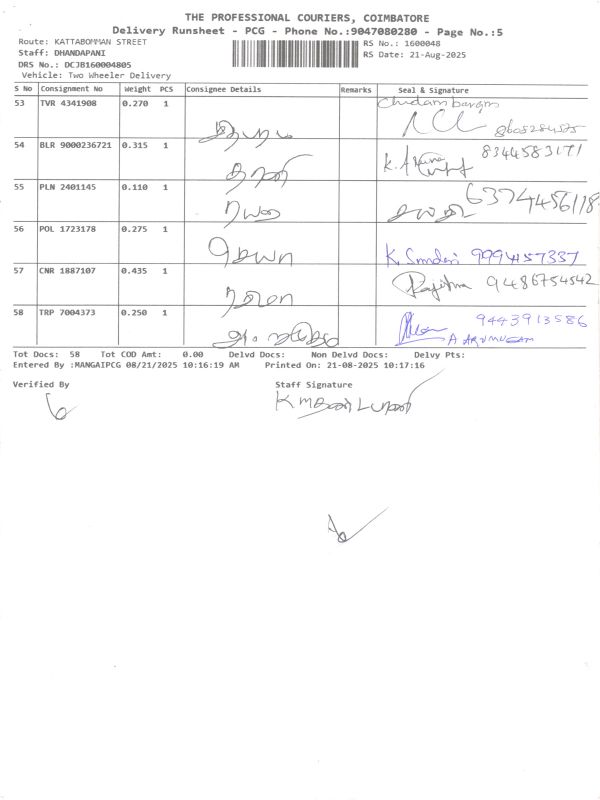 THE PROFESSIONAL COURIERS, COIMBATORE
Delivery Runsheet - PCG - Phone No.:9047080280 - Page No.:5
Route: KATTABOMMAN STREET RS No.: 1600048
Staff: DHANDAPANI RS Date: 21-Aug-2025
DRS No.: DCJB160004805
Vehicle: Two Wheeler Delivery
S No Consignment No Weight PCS Consignee Details Remarks Seal & Signature
53 TVR 4341908 0.270 1 Chidambaram
54 BLR 9000236721 0.315 1 8344583171
55 PLN 2401145 0.110 1 6374456118
56 POL 1723178 0.275 1 K. Sundari 9994157337
57 CNR 1887107 0.435 1 9486754542
58 TRP 7004373 0.250 1 9443913586
A ARUMUGAM
Tot Docs: 58 Tot COD Amt: 0.00 Delvd Docs: Non Delvd Docs: Delvy Pts:
Entered By :MANGAIPCG 08/21/2025 10:16:19 AM Printed On: 21-08-2025 10:17:16
Verified By Staff Signature